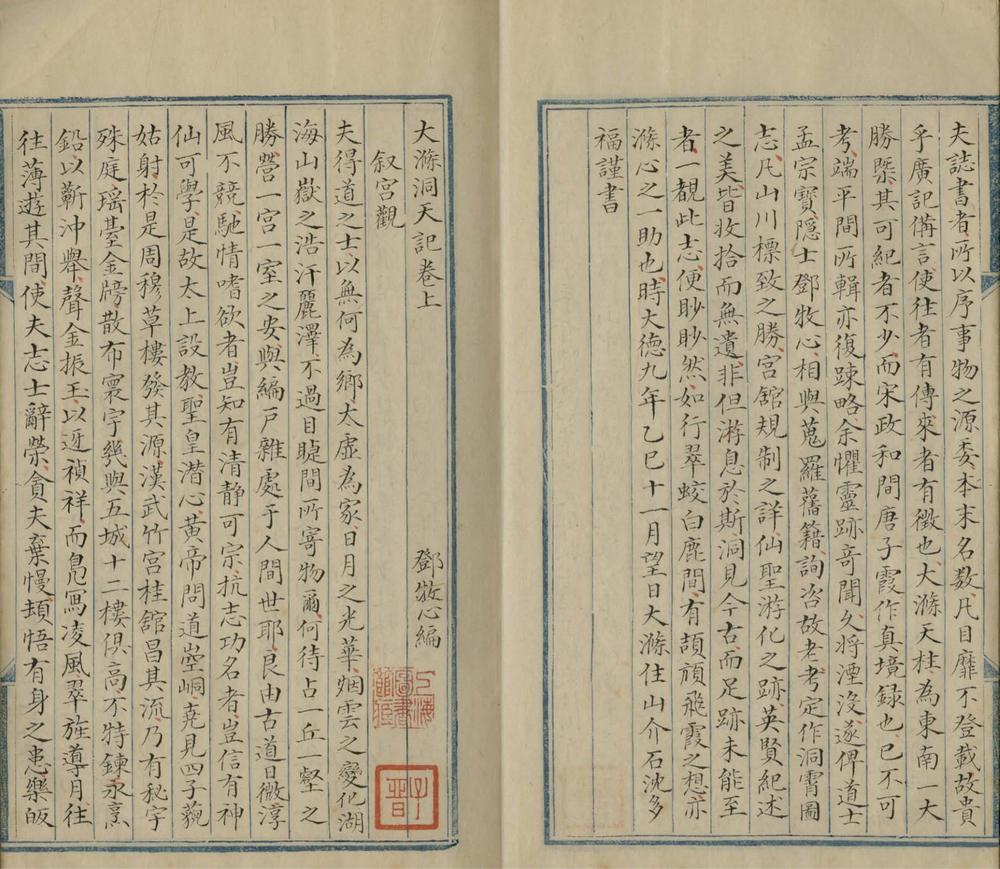 夫誌書者所以序事物之源委本末名数凡目靡不登載故貴
乎廣記俻言使往者有傳來者有徴也大滌天柱為東南一大
勝槩其可紀者不少而宋政和間唐子霞作真境録也已不可
考端平間所輯亦復踈略余懼靈跡竒聞久將湮沒遂俾道士
孟宗寳隱士鄧牧心相與蒐羅舊籍詢咨故老考定作洞霄圖
志凡山川標致之勝宫舘規制之詳仙聖游化之跡英賢紀述
之美皆收拾而無遺非但游息於斯洞見今古而足跡未能至
者一覩此志便眇眇然如行翠蛟白鹿間有頡頏飛霞之想亦
滌心之一助也時大德九年乙巳十一月望日大滌住山介石沈多
福謹書
大滌洞天記卷上
鄧牧心編
叙宫觀
夫得道之士以無何為鄉太虛為家日月之光華烟雲之變化湖
海山嶽之浩汗麗澤不過目睫間所寄物爾何待占一丘一壑之
勝營一宫一室之安與編戸雜處于人間世耶良由古道日微淳
風不競馳情嗜欲者豈知有清静可宗抗志功名者豈信有神
仙可學是故太上設教聖皇潜心黄帝問道崆峒尭見四子藐
姑射於是周穆草樓發其源漢武竹宫桂舘昌其流乃有秘宇
殊庭瑶臺金牓散布寰宇幾與五城十二樓俱高不特鍊永烹
鉛以蘄沖舉聲金振玉以迓禎祥而鳧舄凌風翠旌導月往
往薄遊其間使夫志士辭榮貪夫棄慢頓悟有身之患樂皈